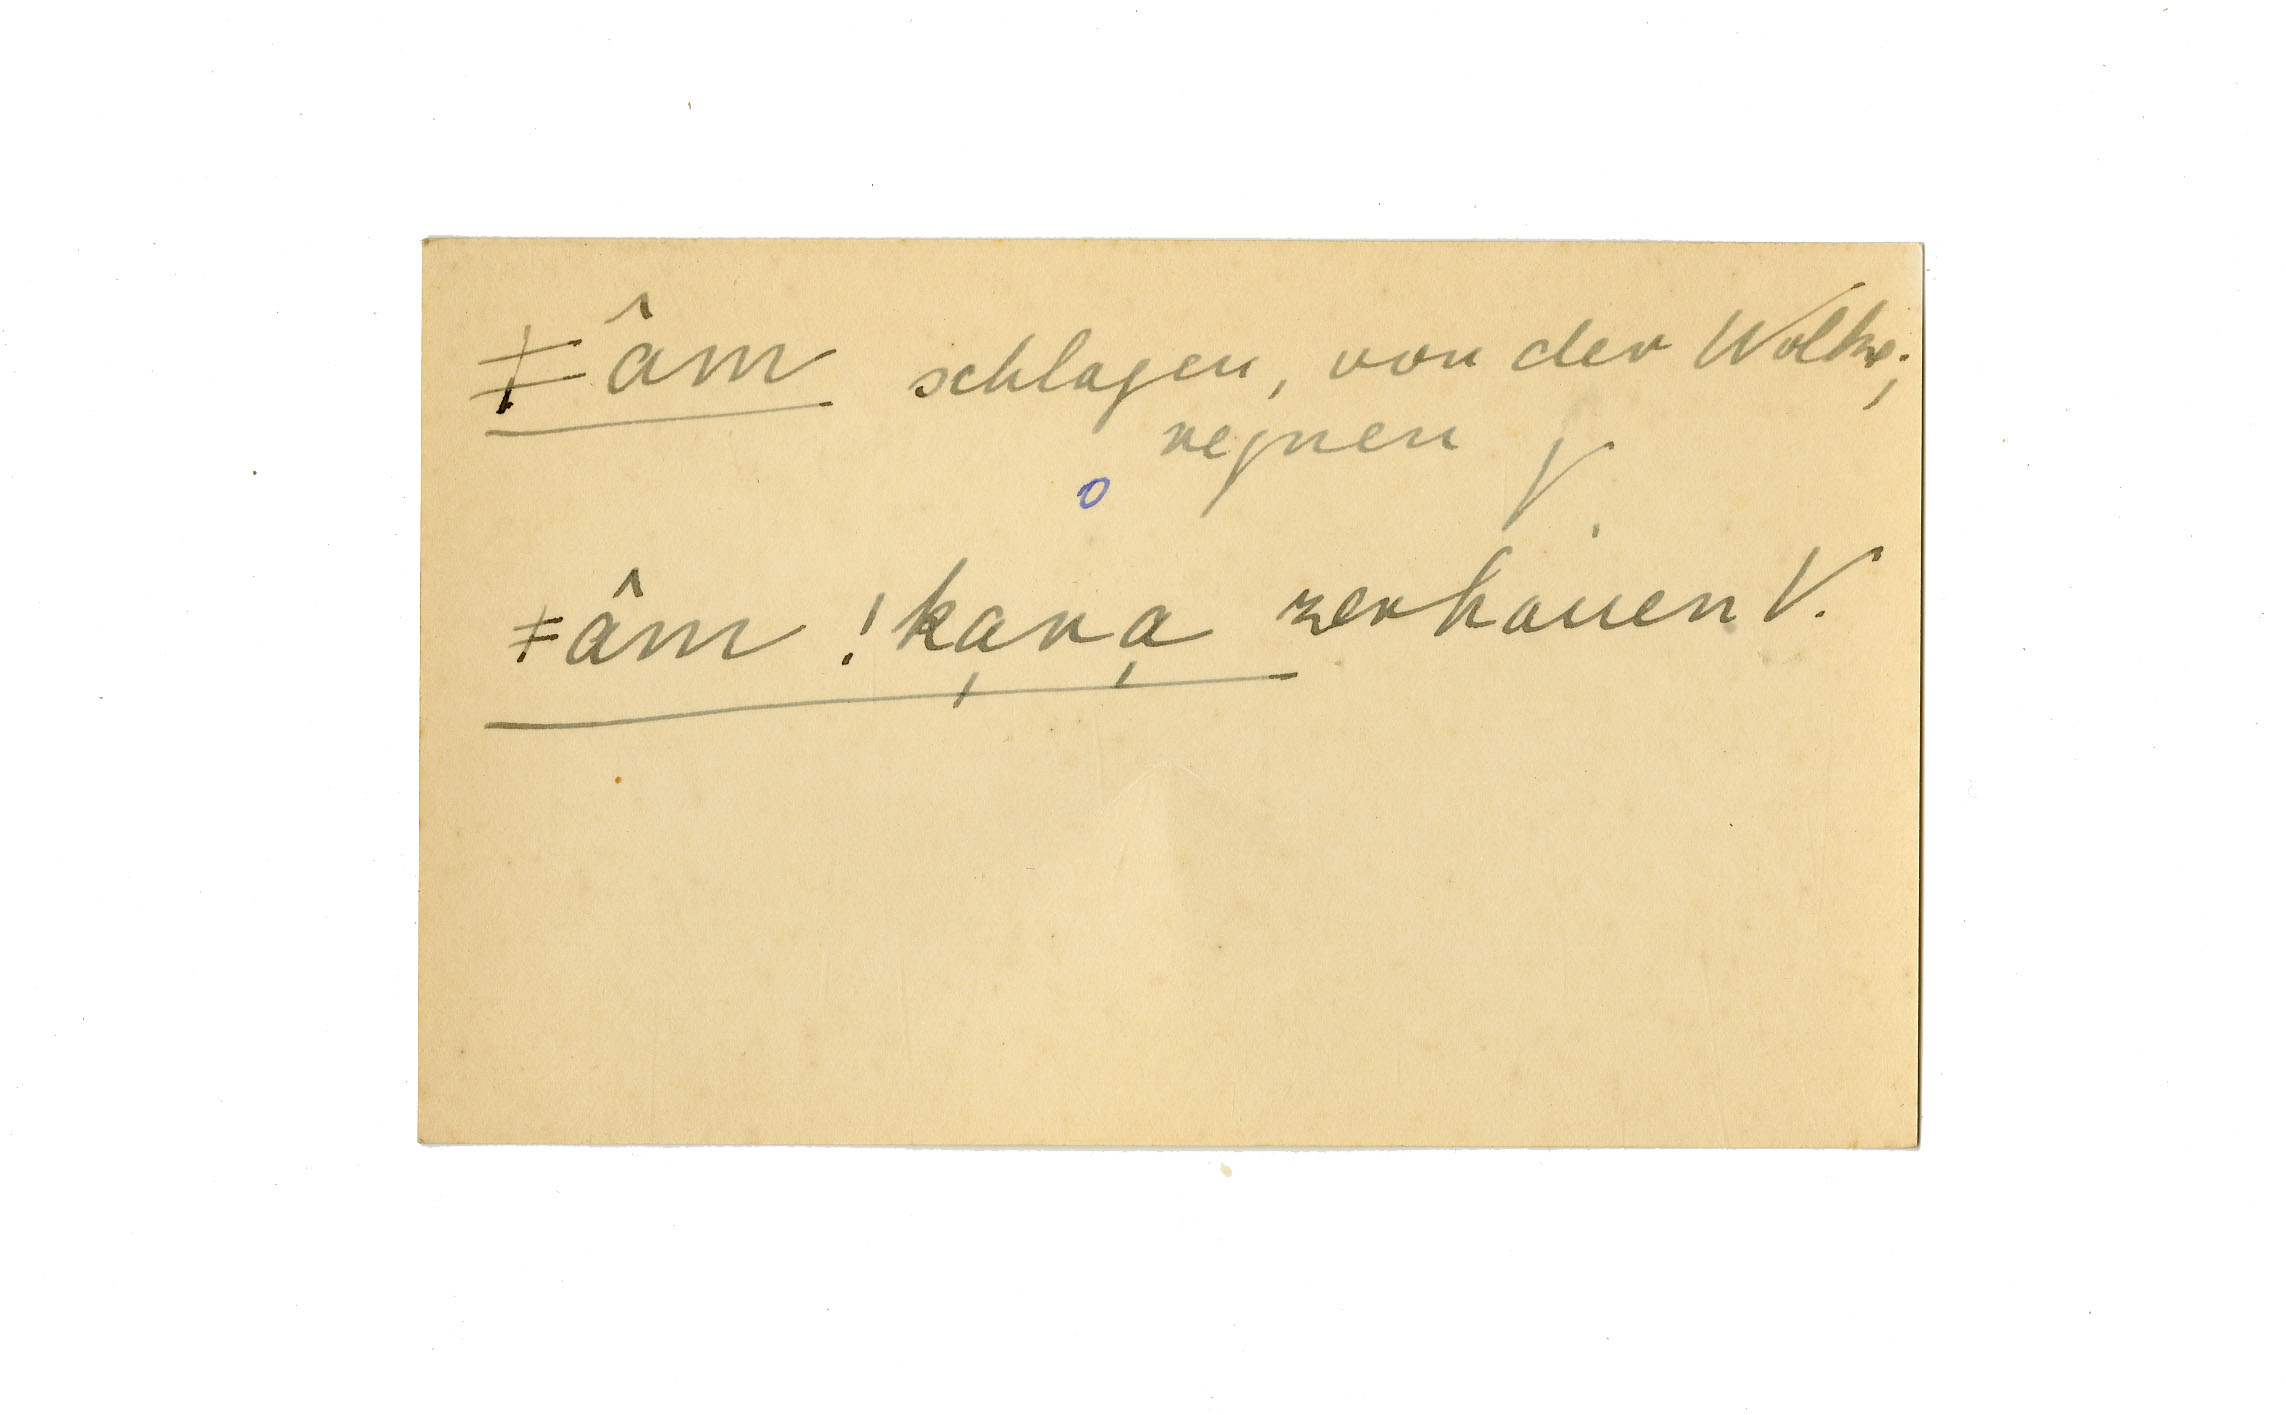 ǂâm schlagen, von der Wolke;
regnen V
o
ǂâm !ka̦ra̦ zerhauen V.